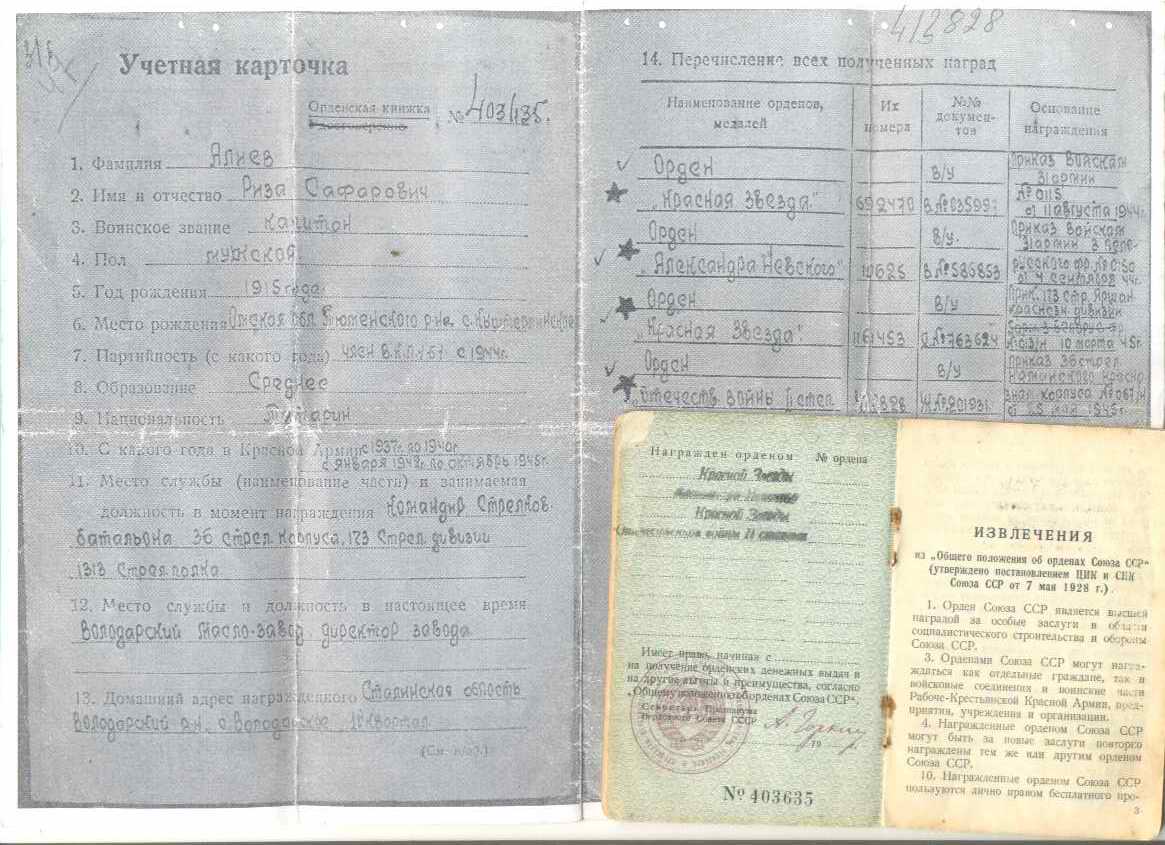 412828
Учетная карточка
Орденская книжка
Удостоверение
№ 403135.
1. Фамилия Ялиев
2. Имя и отчество Риза Сафарович
3. Воинское звание Капитан
4. Пол мужской.
5. Год рождения 1915 года
6. Место рождения Омская обл. Тюменского р-на с.
7. Партийность (с какого года) член В.К.П.(б) с 1944г.
8. Образование Среднее
9. Национальность Татарин
10. С какого года в Красной Армии с 1937г по 1940г
с января 1942г. по октябрь 1945г.
11. Место службы (наименование части) и занимаемая
должность в момент награждения Командир Стрелков.
батальона 36 Стрел. Корпуса, 173 Стрел. дивизии
1313 Стрел. полка
12. Место службы и должность в настоящее время
Володарский Масло-завод директор завода
13. Домашний адрес награжденного Сталинская область
Володарский р.н. с. Володарское квартал
(См. н/об.)
14. Перечисление всех полученных наград
Наименование орденов, медалей
Их номера
№№ документов
Основание награждения
Орден В/у Приказ Войскам
31 армии
"Красная Звезда" 692470 В №635991 № 0115
от 11 августа 1944г.
Орден В/у. Приказ Войскам
31 армии 3 Бело-
"Александра Невского" В.№586853 русского фр.
от 4 сентября 44г.
Орден В/у Прик. 173 стр. Оршан.
Краснозн. дивизии
"Красная Звезда" 1161453 №763624 10 марта 45г.
Орден В/у Приказ 36 стрел.
Отечеств. войны II степ. корпуса №067/н
1945г.
Награжден орденом № ордена
Красной Звезды
Красной Звезды
Отечественной войны II степени
Имеет право, начиная с
на получение орденских денежных выдач и
на другие льготы и преимущества, согласно
„Общему положению об орденах Союза ССР“.
Секретарь Президиума
Верховного Совета СССР А. Горкин
19 г.
№ 403635
ИЗВЛЕЧЕНИЯ
из „Общего положения об орденах Союза ССР“
(утверждено постановлением ЦИК и СНК
Союза ССР от 7 мая 1928 г.)
1. Орден Союза ССР является высшей
наградой за особые заслуги в области
социалистического строительства и обороны
Союза ССР.
3. Орденами Союза ССР могут награ-
ждаться как отдельные граждане, так и
войсковые соединения и воинские части
Рабоче-Крестьянской Красной Армии, пред-
приятия, учреждения и организации.
4. Награжденные орденом Союза ССР
могут быть за новые заслуги повторно
награждены тем же или другим орденом
Союза ССР.
10. Награжденные орденом Союза ССР
пользуются лично правом бесплатного про-
3